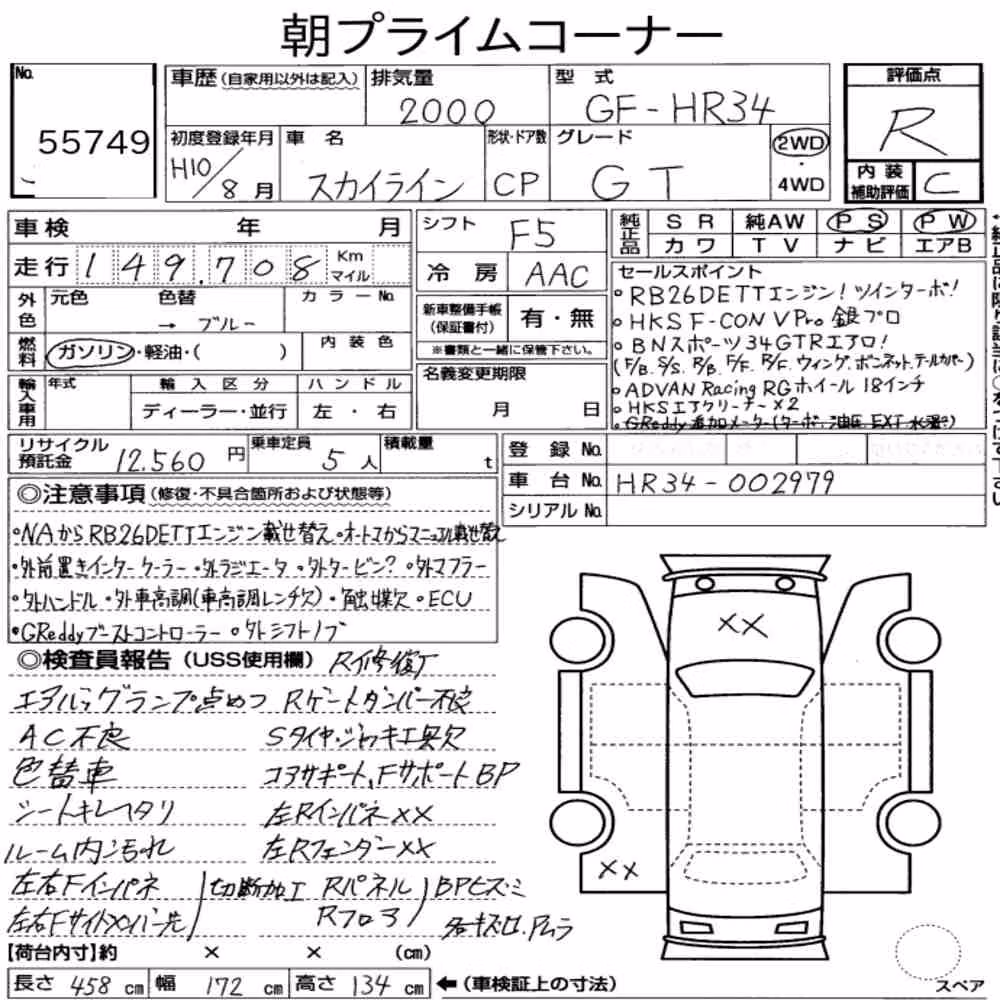 朝プライムコーナー
No. 55749
車歴 (自家用以外は記入)
排気量 2000
型式 GF-HR34
評価点 R
初度登録年月 H10/8月
車名 スカイライン
形状・ドア数 CP
グレード GT
2WD ・ 4WD
内装補助評価 C
車検 年 月
走行 149.708 Km マイル
シフト F5
冷房 AAC
純正品 SR 純AW PS PW
カワ TV ナビ エアB
外色 元色 色替 → ブルー カラーNo.
燃料 ガソリン・軽油・( ) 内装色
新車整備手帳(保証書付) 有・無
※書類と一緒に保管下さい。
セールスポイント
・RB26DETTエンジン!ツインターボ!
・HKS F-CON VPro 銀プロ
・BNスポーツ34GTRエアロ!
(F/B. S/S. R/B. F/F. R/F. ウィング.ボンネット.テールカバー)
・ADVAN Racing RGホイール 18インチ
・HKSエアクリーナー×2
・GReddy追加メーター(ターボ.油圧.EXT.水温?)
輸入車用 年式 輸入区分 ディーラー・並行 ハンドル 左・右
名義変更期限 月 日
リサイクル預託金 12.560円
乗車定員 5人
積載量 t
登録No.
車台No. HR34-002979
シリアルNo.
◎注意事項(修復・不具合箇所および状態等)
・NAからRB26DETTエンジン載せ替え・オートマからマニュアル載せ替え
・外前置きインタークーラー・外ラジエータ・外タービン?・外マフラー
・外ハンドル・外車高調(車高調レンチ欠)・触媒欠・ECU
・GReddyブーストコントローラー・外シフトノブ
◎検査員報告(USS使用欄) R修復有
エアバッグランプ点めつ Rゲートダンパー不良
AC不良 Sタイヤ・ジャッキ工具欠
色替車 コアサポート、FサポートBP
シートキレスタリ 左Rインパネ××
ルーム内汚れ 左Rフェンダー××
左右Fインパネ 切断加工 Rパネル BPヒズミ
左右Fサイドメンバー先 Rフロア
各キズ凹.Pムラ
××
××
【荷台内寸】約 × × (cm)
長さ 458 cm 幅 172 cm 高さ 134 cm ←(車検証上の寸法)
スペア